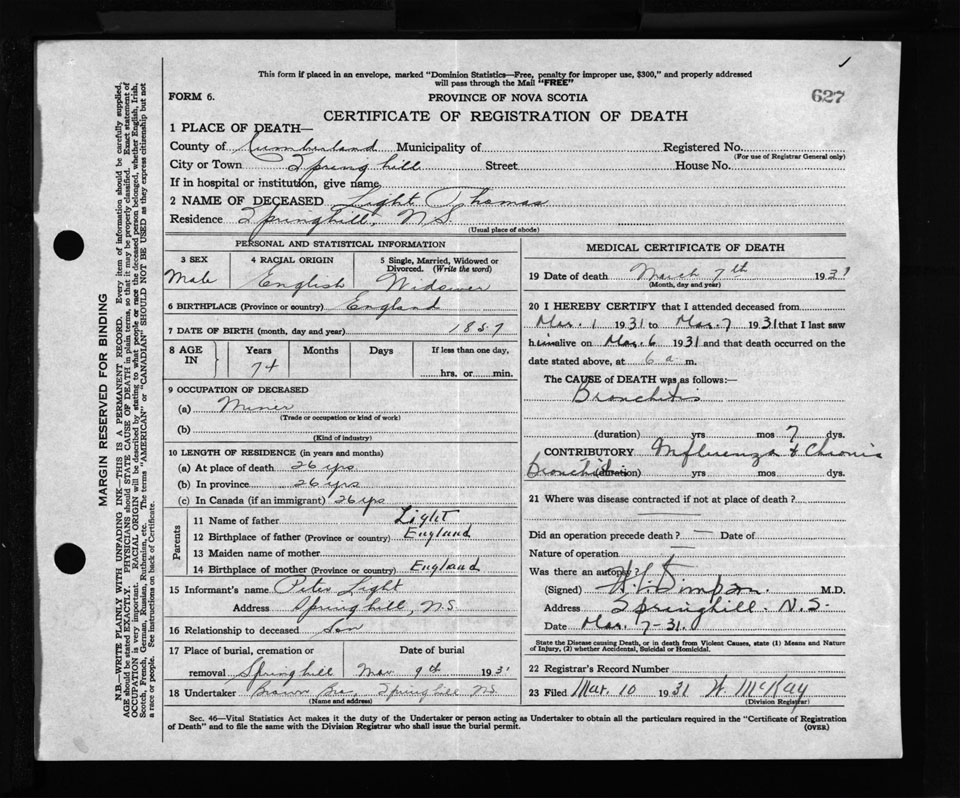 1
This form if placed in an envelope, marked "Dominion Statistics—Free, penalty for improper use, $300," and properly addressed
will pass through the Mail "FREE"
FORM 6.
PROVINCE OF NOVA SCOTIA
627
CERTIFICATE OF REGISTRATION OF DEATH
1 PLACE OF DEATH—
County of Cumberland Municipality of Registered No.
(For use of Registrar General only)
City or Town Springhill Street House No.
If in hospital or institution, give name
2 NAME OF DECEASED Light Thomas
Residence Springhill, N.S.
(Usual place of abode)
PERSONAL AND STATISTICAL INFORMATION
3 SEX
Male
4 RACIAL ORIGIN
English
5 Single, Married, Widowed or
Divorced. (Write the word)
Widower
6 BIRTHPLACE (Province or country) England
7 DATE OF BIRTH (month, day and year) 1857
8 AGE IN
Years Months Days If less than one day,
74
hrs. or min.
9 OCCUPATION OF DECEASED
(a) Miner
(Trade or occupation or kind of work)
(b)
(Kind of industry)
10 LENGTH OF RESIDENCE (in years and months)
(a) At place of death 26 yrs
(b) In province 26 yrs
(c) In Canada (if an immigrant) 26 yrs
Parents
11 Name of father Light
12 Birthplace of father (Province or country) England
13 Maiden name of mother
14 Birthplace of mother (Province or country) England
15 Informant's name Peter Light
Address Springhill, N.S.
16 Relationship to deceased Son
17 Place of burial, cremation or
removal Springhill
Date of burial
Mar 9th 1931
18 Undertaker Brown Bro, Springhill NS.
(Name and address)
MEDICAL CERTIFICATE OF DEATH
19 Date of death March 7th 1931
(Month, day and year)
20 I HEREBY CERTIFY that I attended deceased from
Mar. 1 1931 to Mar. 7 1931 that I last saw
him alive on Mar. 6 1931 and that death occurred on the
date stated above, at 6 a m.
The CAUSE of DEATH was as follows:—
Bronchitis
(duration) yrs mos 7 dys.
CONTRIBUTORY Influenza & Chronic
Bronchitis (duration) yrs mos dys.
21 Where was disease contracted if not at place of death?
Did an operation precede death? — Date of
Nature of operation —
Was there an autopsy?
(Signed) Simpson. M.D.
Address Springhill. N.S.
Date Mar. 7-31.
State the Disease causing Death, or in death from Violent Causes, state (1) Means and Nature
of Injury, (2) whether Accidental, Suicidal or Homicidal.
22 Registrar's Record Number
23 Filed Mar. 10 1931 W. McKay
(Division Registrar)
Sec. 46—Vital Statistics Act makes it the duty of the Undertaker or person acting as Undertaker to obtain all the particulars required in the "Certificate of Registration
of Death" and to file the same with the Division Registrar who shall issue the burial permit.
(OVER)
MARGIN RESERVED FOR BINDING
N.B.—WRITE PLAINLY WITH UNFADING INK—THIS IS A PERMANENT RECORD. Every item of information should be carefully supplied,
AGE should be stated EXACTLY. PHYSICIANS should STATE CAUSE OF DEATH in plain terms, so that it may be properly classified. Exact statement of
OCCUPATION is very important. RACIAL ORIGIN will be described by stating to what people or race the deceased person belonged, whether English, Irish,
Scotch, French, German, Russian, Ruthenian, etc. The terms "AMERICAN" or "CANADIAN" SHOULD NOT BE USED as they express citizenship but not
a race or people. See instructions on back of Certificate.